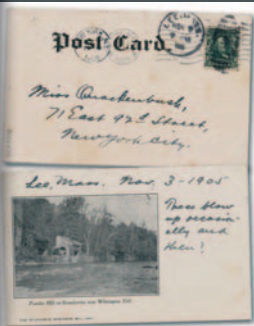 Post Card.
Miss Quackenbush,
71 East 92d Street,
New York City.
Lee, Mass. Nov. 3-1905
These blow
up occasion-
ally and
then?
Powder Mill on Brandywine near Wilmington, Del.